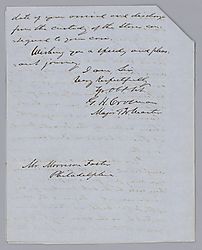 date of your arrival and discharge
from the custody of the Stores con-
signed to your care.
Wishing you a speedy and pleas-
ant journey
I am Sir
Very Respectfully
Yr Obt Svt
G. H. Crosman
Major & Qr Master
Mr. Morrison Foster
Philadelphia